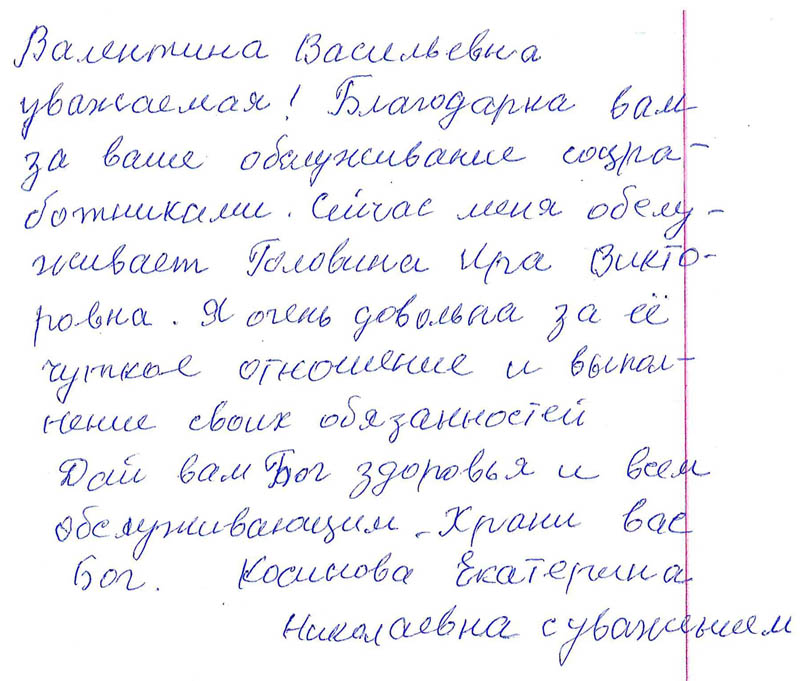 Валентина Васильевна
уважаемая! Благодарна вам
за ваше обслуживание соцра-
ботниками. Сейчас меня обслу-
живает Головина Ира Викто-
ровна. Я очень довольна за её
чуткое отношение и выпол-
нение своих обязанностей
Дай вам Бог здоровья и всем
обслуживающим. Храни вас
Бог. Косинова Екатерина
Николаевна с уважением